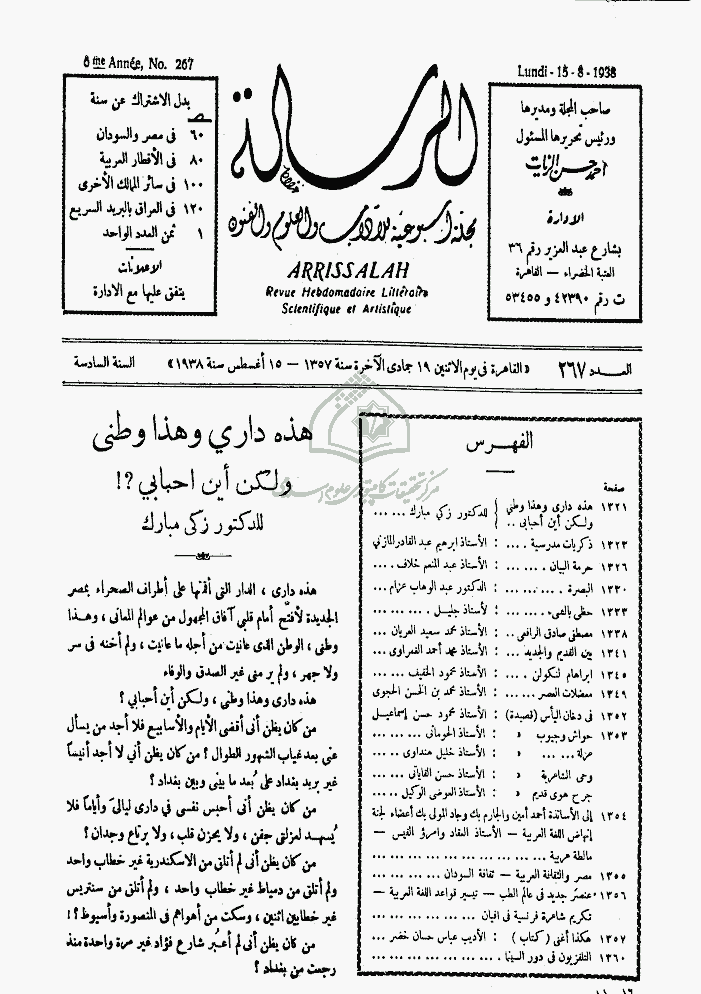 8me Année, No. 267
بدل الاشتراك عن سنة
ص
٦٠ فى مصر والسودان
٨٠ فى الأقطار العربية
١٠٠ فى سائر الممالك الأخرى
١٢٠ فى العراق بالبريد السريع
١ ثمن العدد الواحد
الاعلانات
يتفق عليها مع الادارة
الرسالة
مجلة أسبوعية للآداب والعلوم والفنون
ARRISSALAH
Revue Hebdomadaire Littéraire
Scientifique et Artistique
Lundi - 15 - 8 - 1938
صاحب المجلة ومديرها
ورئيس تحريرها المسئول
احمد حسن الزيات
الادارة
بشارع عبد العزيز رقم ٣٦
العتبة الخضراء — القاهرة
ت رقم ٤٢٣٩٠ و ٥٣٤٥٥
العـــدد ٢٦٧ « القاهرة فى يوم الاثنين ١٩ جمادى الآخرة سنة ١٣٥٧ — ١٥ أغسطس سنة ١٩٣٨ » السنة السادسة
الفهـــرس
صفحة
١٣٢١ هذه دارى وهذا وطنى ولكن أين أحبابى .. } للدكتور زكى مبارك ... ...
١٣٢٣ ذكريات مدرسية .. ... : الأستاذ ابرهيم عبد القادر المازنى
١٣٢٦ حرمة البيان .. ... ... : الأستاذ عبد المنعم خلاف .. ...
١٣٣٠ البصرة . ... ... ... : الدكتور عبد الوهاب عزام ...
١٣٣٣ حظى بالفىء .. ... ... : لأستاذ جليل .. ... ... ...
١٣٣٨ مصطفى صادق الرافعى .. : الأستاذ محمد سعيد العريان ...
١٣٤١ بين القديم والجديد ... : الأستاذ محمد أحمد الغمراوى ...
١٣٤٥ ابراهام لنكولن . ... : الأستاذ محمود الخفيف ... ...
١٣٤٩ معضلات العصر ... ... : الأستاذ محمد بن الحسن الحجوى
١٣٥٢ فى دخان اليأس (قصيدة) : الأستاذ محمود حسن إسماعيل
١٣٥٣ حواش وجيوب » : الأستاذ الحومانى ... ... ...
عزلة ... ... » : الأستاذ خليل هنداوى .. ...
وحى الشاعرية » : الأستاذ حسن القاياتى ... ...
جرح هوى قديم » : الأستاذ العوضى الوكيل .. ...
١٣٥٤ إلى الأساتذة أحمد أمين والجارم بك وجاد المولى بك أعضاء لجنة
إنهاض اللغة العربية — الأستاذ العقاد وامرؤ القيس —
مالطة عربية ... ... ... ... ... ... ...
١٣٥٥ مصر والثقافة العربية — ثقافة السودان ... ... ...
١٣٥٦ عنصر جديد فى عالم الطب — تيسير قواعد اللغة العربية —
تكريم شاعرة فرنسية فى افيان ... ... ... ...
١٣٥٧ هكذا أغنى ( كتاب ) : الأديب عباس حسان خضر ...
١٣٦٠ التلفزيون فى دور السينما . ... ... ... ... ...
هذه داري وهذا وطنى
ولكن أين احبابي ؟!
للدكتور زكى مبارك
هذه دارى ، الدار التى أقمتها على أطراف الصحراء بمصر
الجديدة لأفتّح أمام قلبى آفاق المجهول من عوالم المعانى ، وهـذا
وطنى ، الوطن الذى عانيت من أجله ما عانيت ، ولم أخنه فى سر
ولا جهر ، ولم ير منى غير الصدق والوفاء
هذه دارى وهذا وطنى ، ولكن أين أحبابي ؟
من كان يظن أنى أقضى الأيام والأسابيع فلا أجد من يسأل
عنى بعد غياب الشهور الطوال ؟ من كان يظن أنى لا أجد أنيساً
غير بريد بغداد على بُعد ما بينى وبين بغداد ؟
من كان يظن أنى أحبس نفسى فى دارى ليالىَ وأياماً فلا
يُسهد لعزلتى جفن ، ولا يحزن قلب ، ولا يرتاع وجدان ؟
من كان يظن أنى لم أتلق من الاسكندرية غير خطاب واحد
ولم أتلق من دمياط غير خطاب واحد ، ولم أتلق من سنتريس
غير خطابين اثنين ، وسكت من أهواهم فى المنصورة وأسيوط ؟!
من كان يظن أنى لم أعبُر شارع فؤاد غير مرة واحدة منذ
رجعت من بغداد ؟
مركز تحقيقات كامپيوترى علوم اسلامى